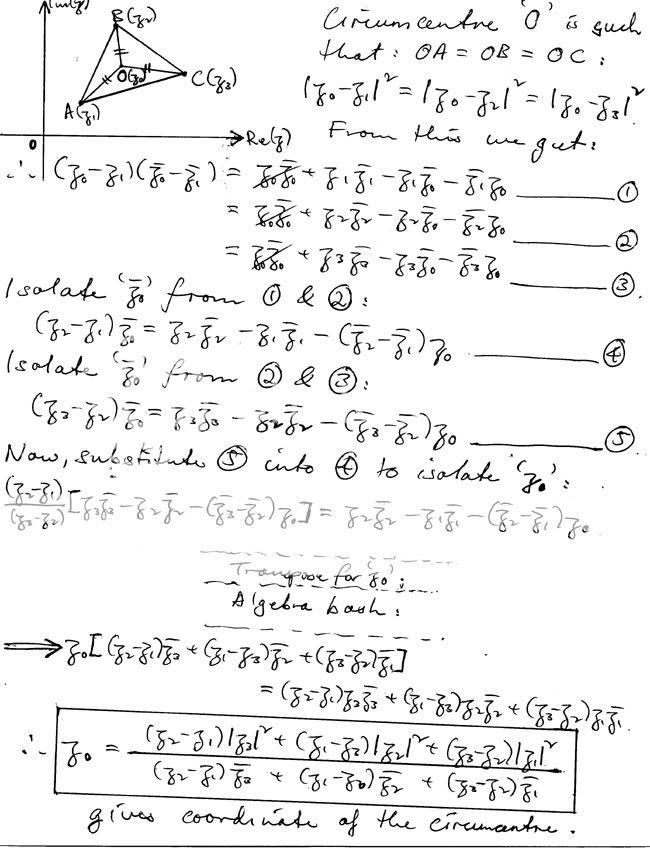 Im(z)
B(z₂)
O(z₀)
C(z₃)
A(z₁)
0
Re(z)
Circumcentre 'O' is such
that: OA = OB = OC :
|z₀-z₁|² = |z₀-z₂|² = |z₀-z₃|²
From this we get:
∴ (z₀-z₁)(z̄₀-z̄₁) = z₀z̄₀ + z₁z̄₁ - z₁z̄₀ - z̄₁z₀ ①
= z₀z̄₀ + z₂z̄₂ - z₂z̄₀ - z̄₂z₀ ②
= z₀z̄₀ + z₃z̄₃ - z₃z̄₀ - z̄₃z₀ ③
Isolate 'z̄₀' from ① & ②:
(z₂-z₁)z̄₀ = z₂z̄₂ - z₁z̄₁ - (z̄₂-z̄₁)z₀ ④
Isolate 'z̄₀' from ② & ③:
(z₃-z₂)z̄₀ = z₃z̄₃ - z₂z̄₂ - (z̄₃-z̄₂)z₀ ⑤
Now, substitute ⑤ into ④ to isolate 'z₀':
(z₂-z₁)/(z₃-z₂) [z₃z̄₃ - z₂z̄₂ - (z̄₃-z̄₂)z₀] = z₂z̄₂ - z₁z̄₁ - (z̄₂-z̄₁)z₀
Transpose for 'z₀':
Algebra bash:
⟹ z₀[(z₂-z₁)z̄₃ + (z₁-z₃)z̄₂ + (z₃-z₂)z̄₁]
= (z₂-z₁)z₃z̄₃ + (z₁-z₃)z₂z̄₂ + (z₃-z₂)z₁z̄₁
∴ z₀ = (z₂-z₁)|z₃|² + (z₁-z₃)|z₂|² + (z₃-z₂)|z₁|²
(z₂-z₁)z̄₃ + (z₁-z₃)z̄₂ + (z₃-z₂)z̄₁
gives coordinate of the circumcentre.